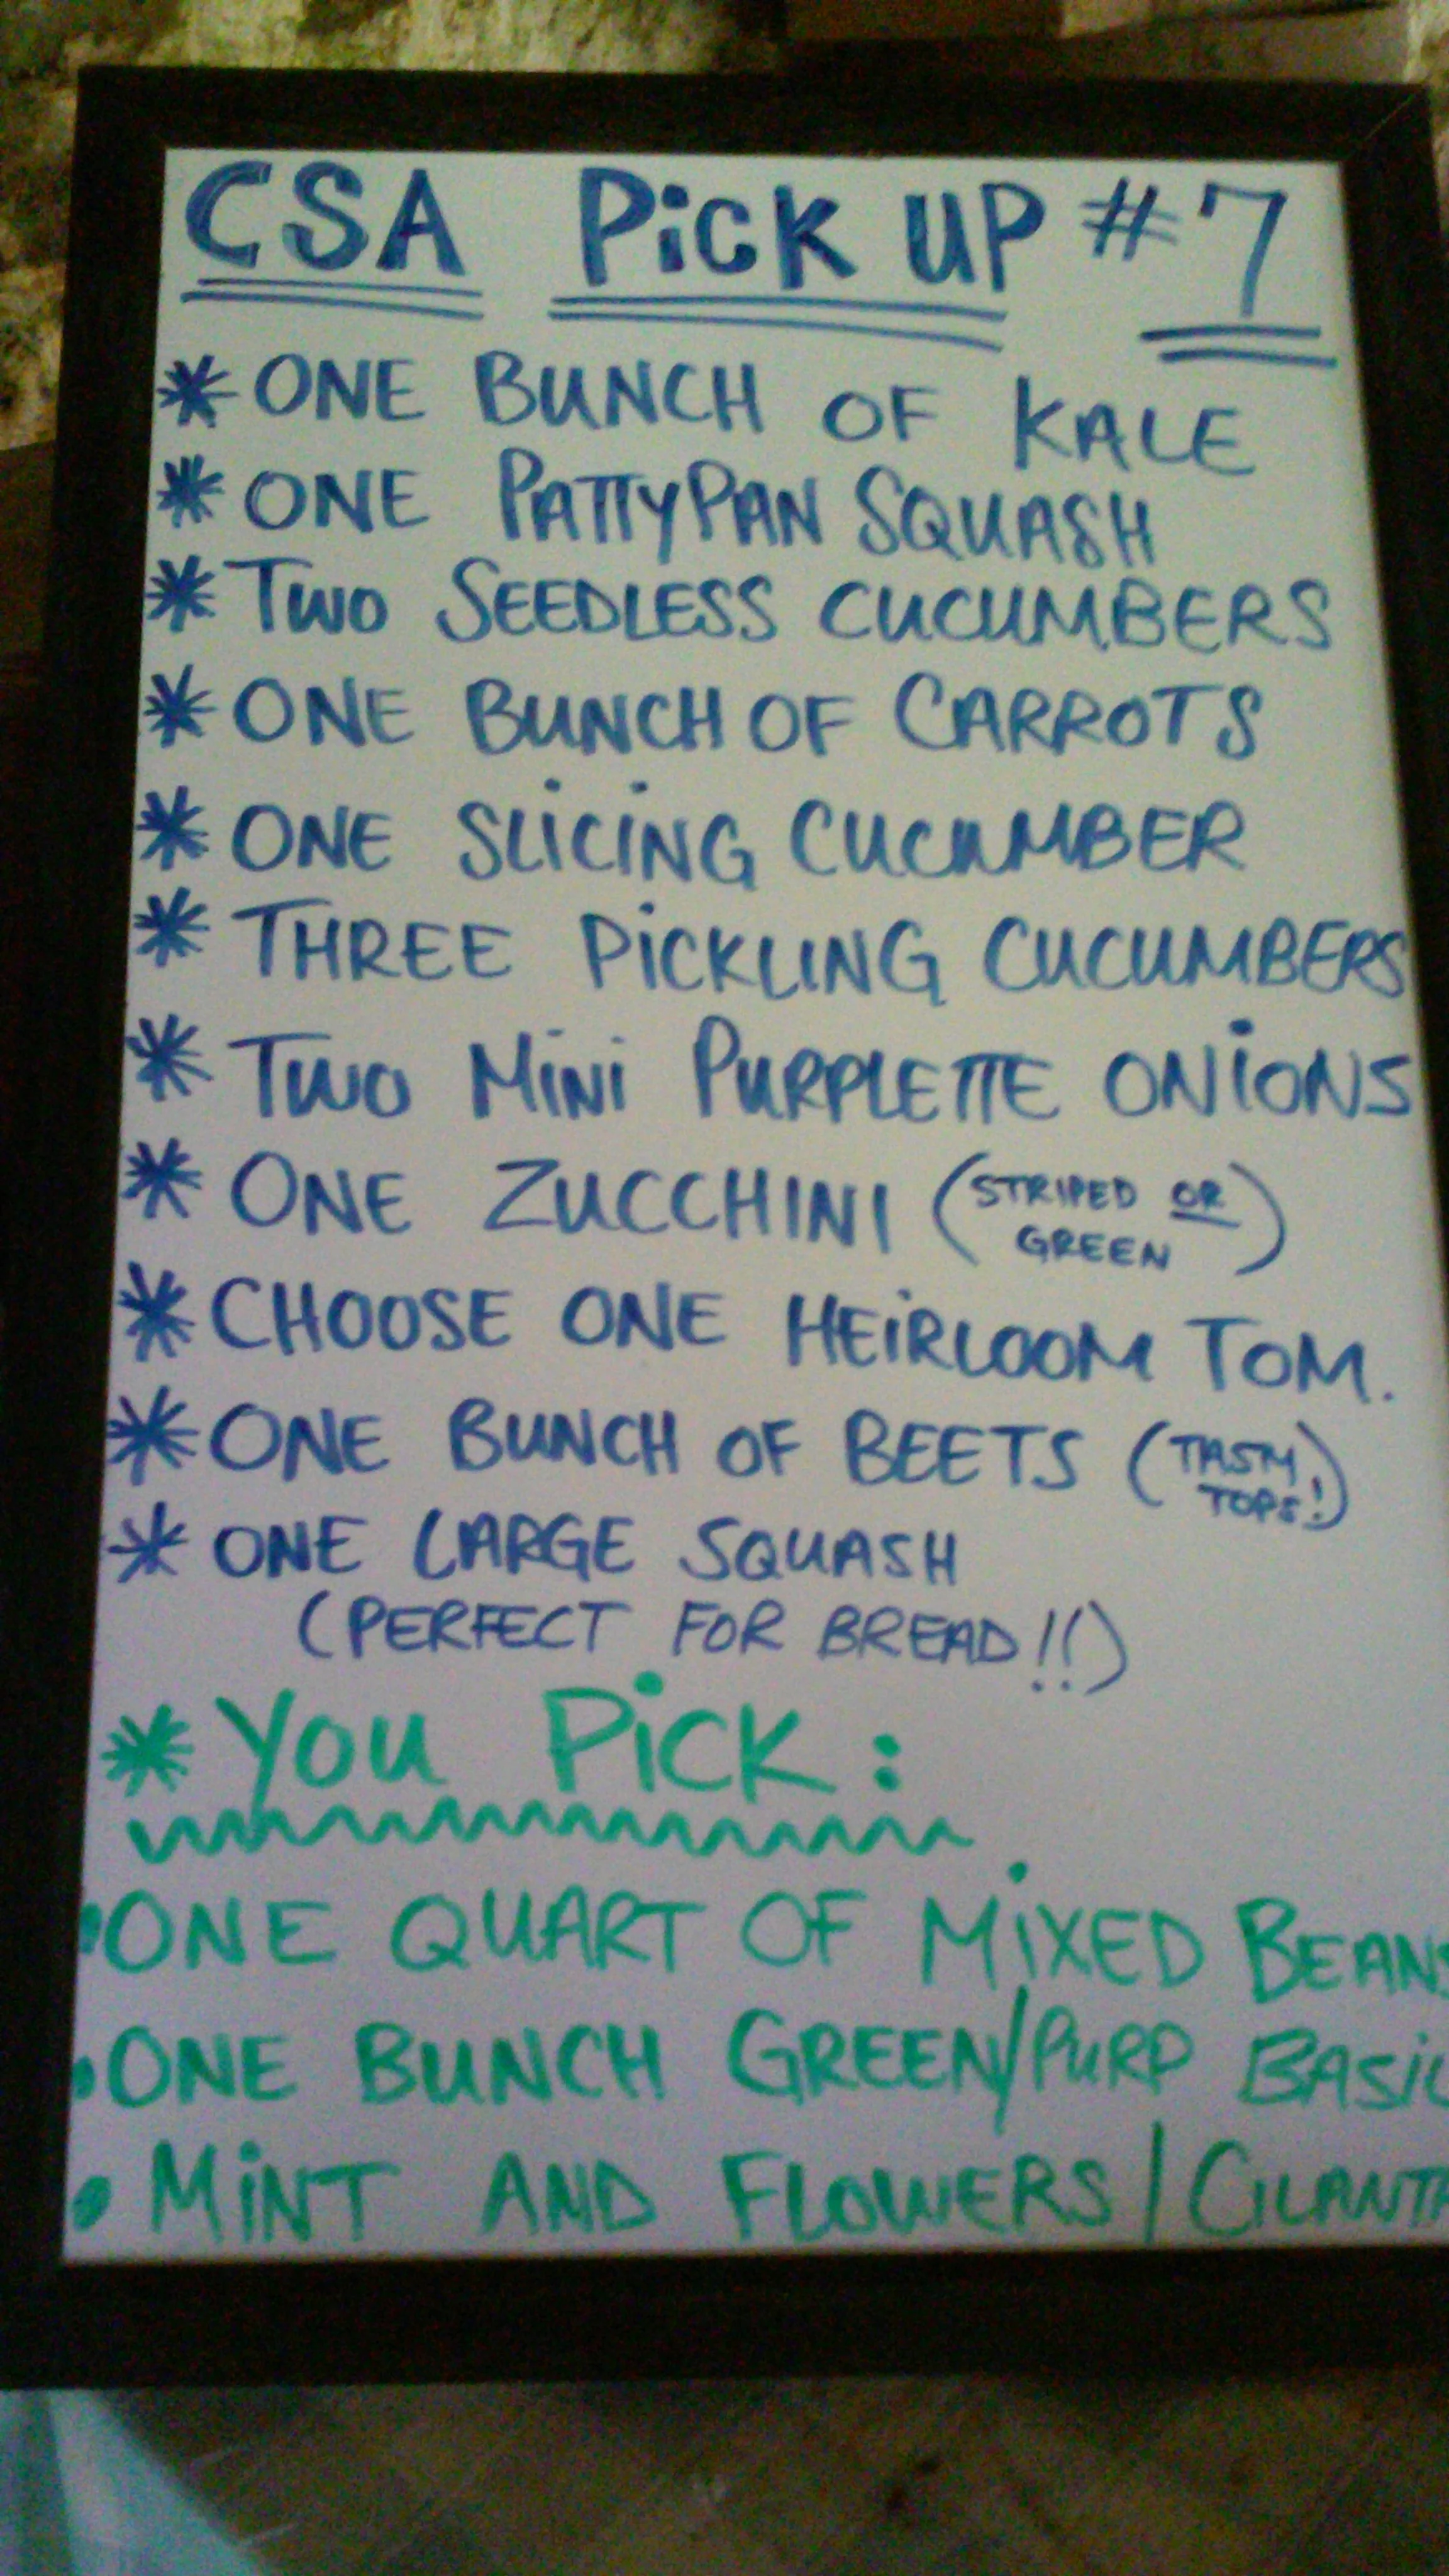 CSA PiCK UP #7
* ONE BUNCH OF KALE
* ONE PATTYPAN SQUASH
* TWO SEEDLESS CUCUMBERS
* ONE BUNCH OF CARROTS
* ONE SLiCiNG CUCUMBER
* THREE PiCKLING CUCUMBERS
* TWO MiNi PURPLETTE ONiONS
* ONE ZUCCHINI (STRIPED OR
GREEN)
* CHOOSE ONE HEiRLOOM TOM.
* ONE BUNCH OF BEETS (TASTY
TOPS!)
* ONE LARGE SQUASH
(PERFECT FOR BREAD!!)
* YOU PiCK:
• ONE QUART OF MiXED BEANS
• ONE BUNCH GREEN/PURP BASiL
• MiNT AND FLOWERS/CILANT